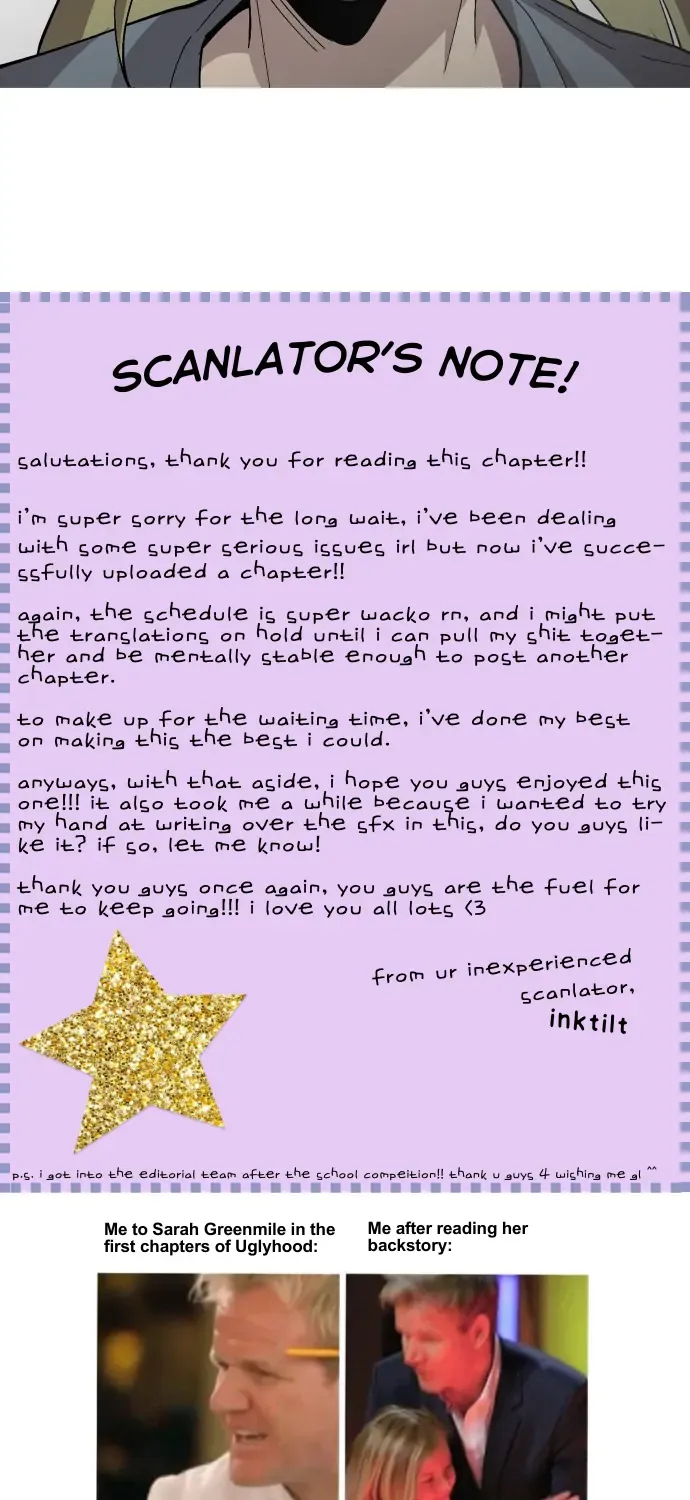 SCANLATOR'S NOTE!
salutations, thank you for reading this chapter!!
i'm super sorry for the long wait, i've been dealing
with some super serious issues irl but now i've succe-
ssfully uploaded a chapter!!
again, the schedule is super wacko rn, and i might put
the translations on hold until i can pull my shit toget-
her and be mentally stable enough to post another
chapter.
to make up for the waiting time, i've done my best
on making this the best i could.
anyways, with that aside, i hope you guys enjoyed this
one!!! it also took me a while because i wanted to try
my hand at writing over the sfx in this, do you guys li-
ke it? if so, let me know!
thank you guys once again, you guys are the fuel for
me to keep going!!! i love you all lots <3
from ur inexperienced
scanlator,
inktilt
p.s. i got into the editorial team after the school compeition!! thank u guys 4 wishing me gl ^^
Me to Sarah Greenmile in the
first chapters of Uglyhood:
Me after reading her
backstory: